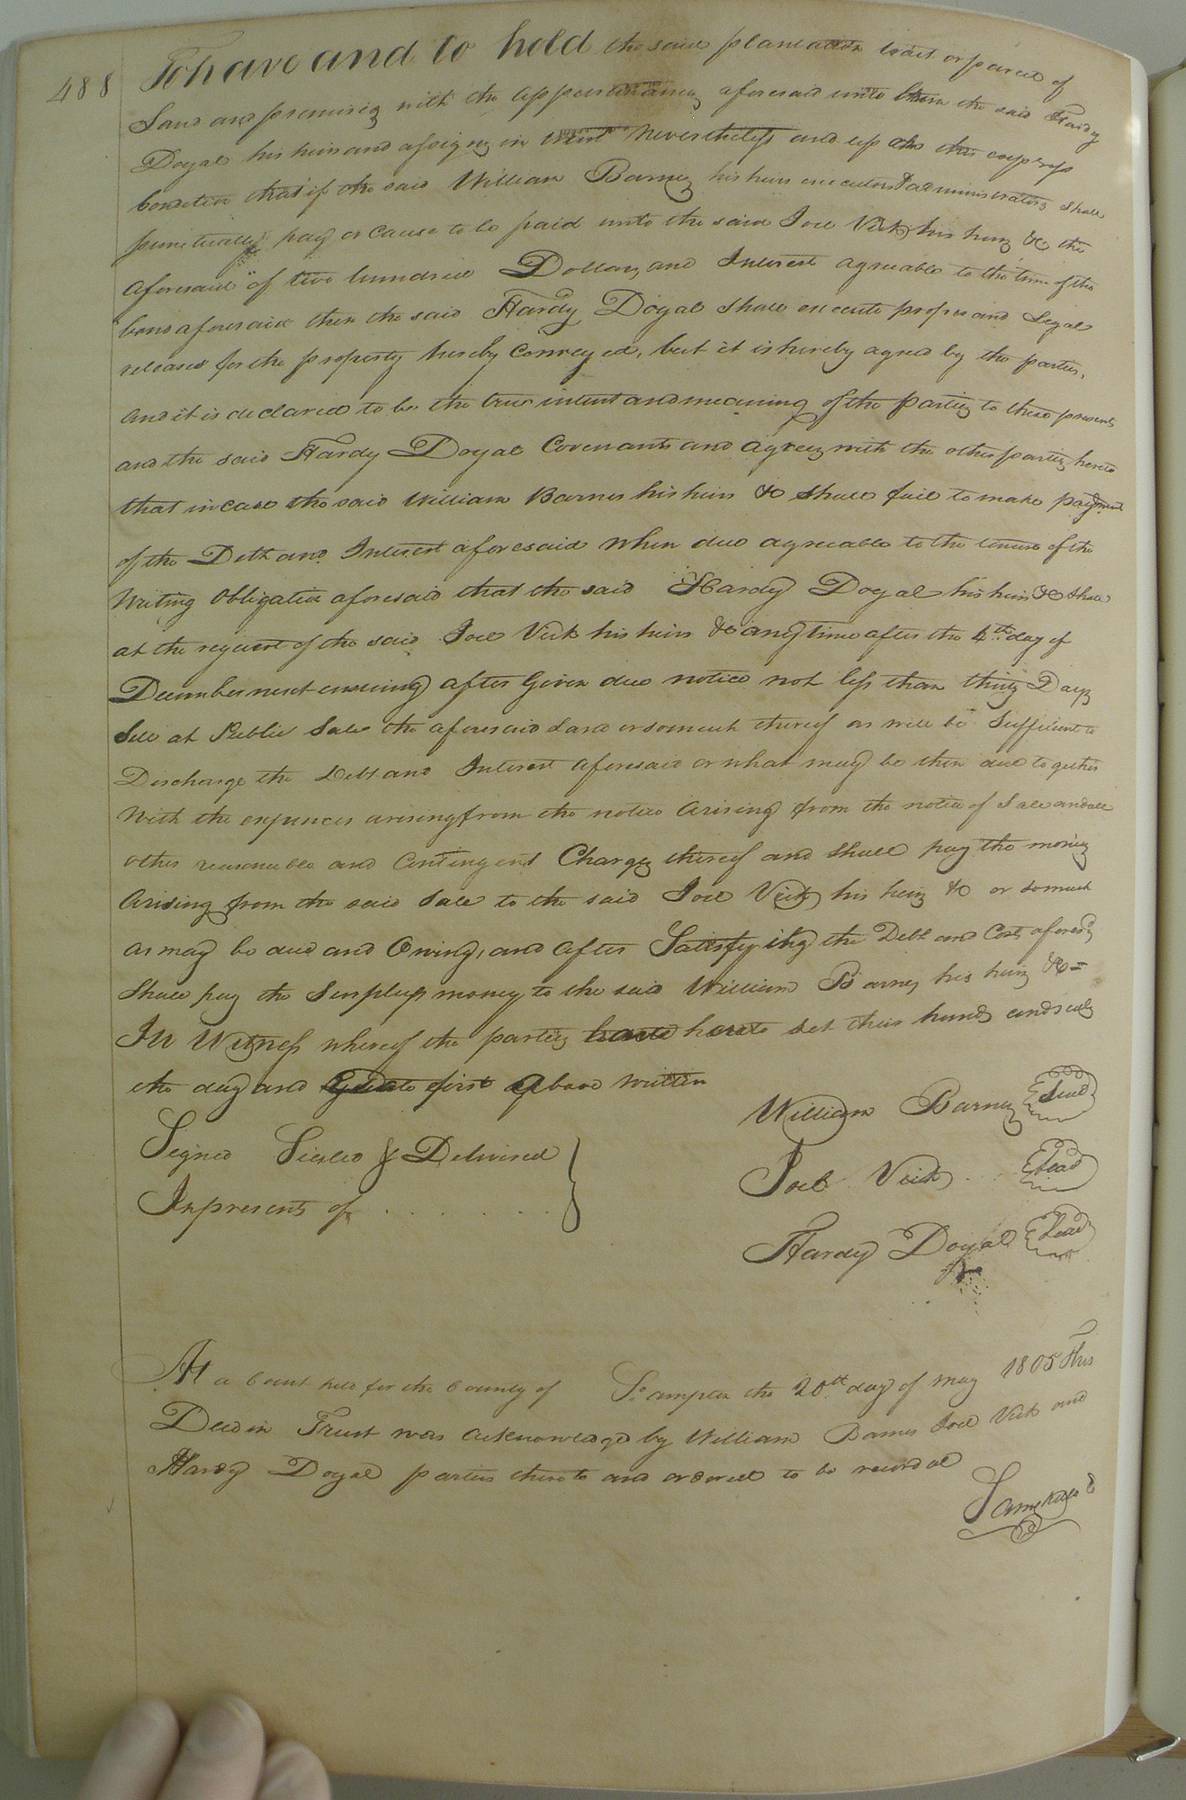 488
To have and to hold the said plantation tract or parcel of
Land and premisies with the appurtenances aforesaid unto him the said Hardy
Doyal his heirs and assigns in trust Nevertheless and upon this express
Condition that if the said William Barnes his heirs executors & administrators shall
punctually pay or cause to be paid unto the said Joel Vick his heirs &c the
aforesaid of two hundred Dollars and Interest agreable to the time of the
bond aforesaid then the said Hardy Doyal shall execute proper and Legal
releases for the property hereby Conveyed, but it is hereby agreed by the parties,
and it is declared to be the true intent and meaning of the parties to these presents
and the said Hardy Doyal Covenants and agrees with the other parties hereto
that in case the said William Barnes his heirs &c shall fail to make payment
of the Debt and Interest aforesaid when due agreeable to the tenure of the
Writing Obligation aforesaid that the said Hardy Doyal his heirs &c shall
at the request of the said Joel Vick his heirs &c any time after the 4th day of
December next ensuing after Given due notice not less than thirty Days
Sell at Public Sale the aforesaid Land or so much thereof as will be Sufficient to
Discharge the Debt and Interest aforesaid or what may be then due together
With the expences arising from the notice arising from the notice of Sale and all
other reasonable and Contingent Charges thereof and shall pay the monies
Arising from the said Sale to the said Joel Vick his heirs &c or so much
as may be due and Owing, and after Satisfying the Debt and Costs aforesd
Shall pay the Surpluss money to the said William Barnes his heirs &c=
In Witness whereof the parties hereto set their hands and seals
the day and first above written
William Barnes Seal
Signed Sealed & Delivered
Joel Vick Seal
In presents of
Hardy Doyal Seal
At a Court held for the County of Sampton the 20th day of May 1805 This
Deed in Trust was acknowledged by William Barnes Joel Vick and
Hardy Doyal parties thereto and ordered to be recorded